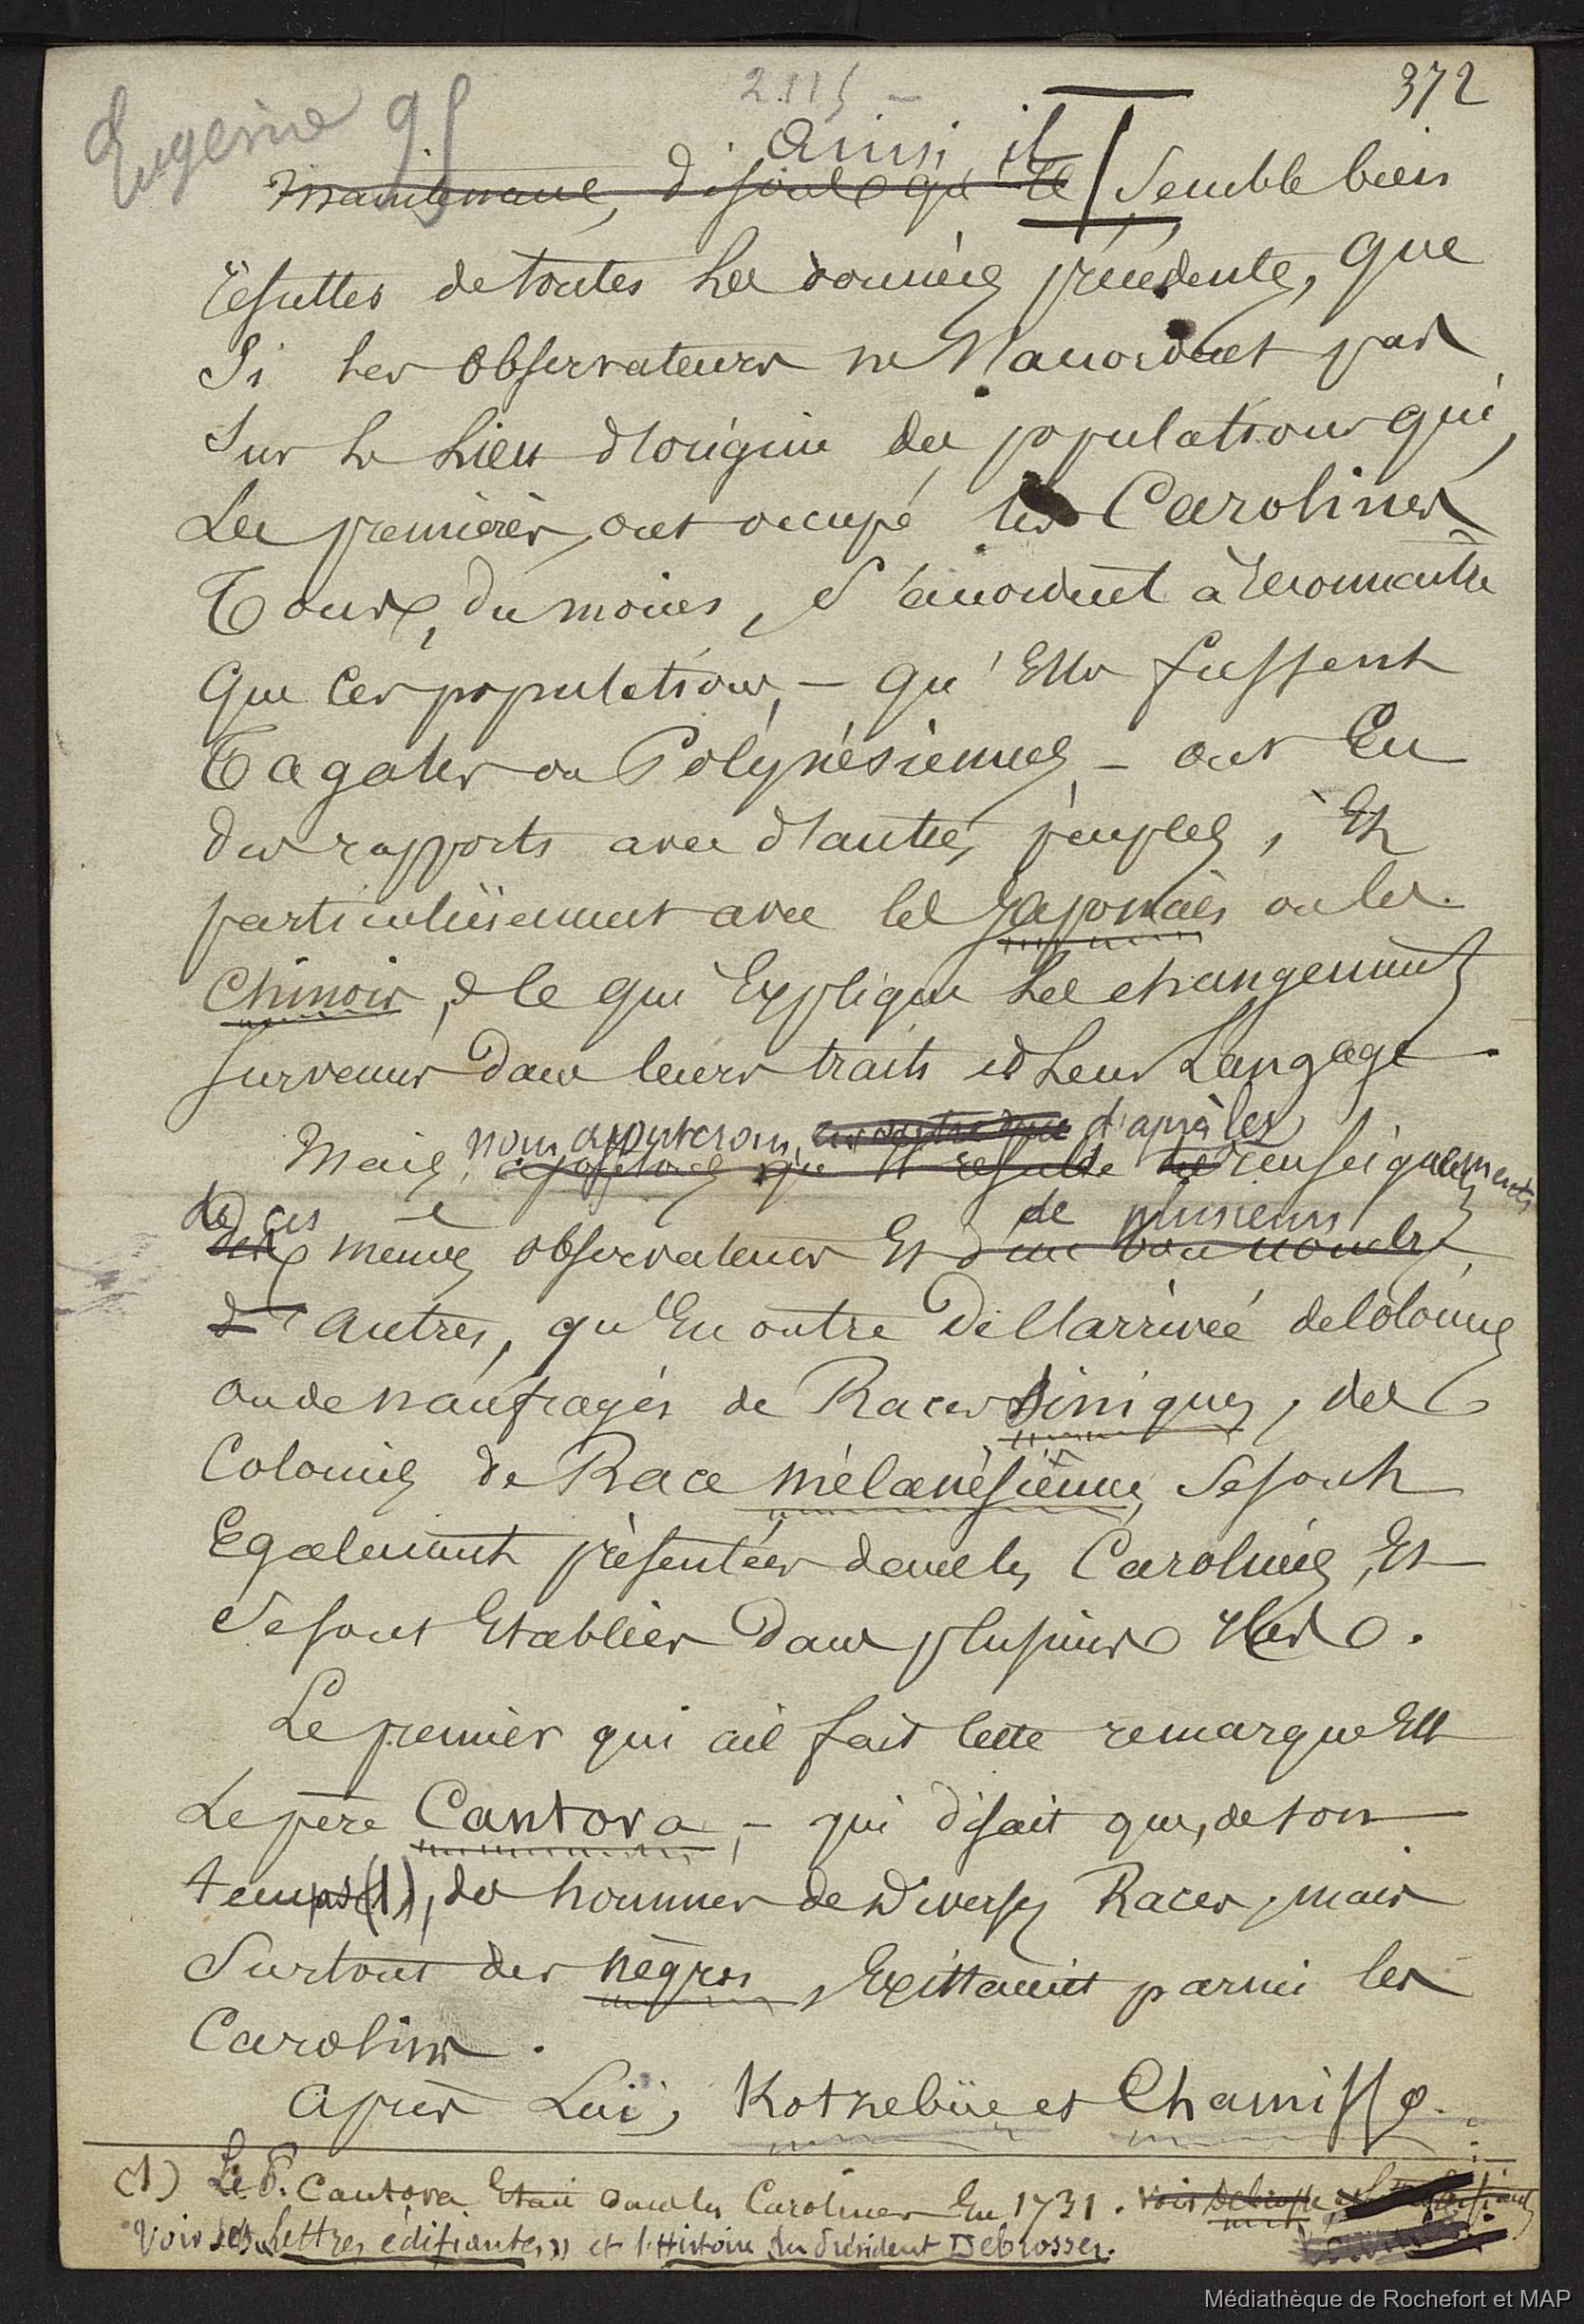 372
2115 –
Eugénie 95
Ainsi il
Maintenant, disons qu'il semble bien
résulter de toutes les données précédentes, que
si les observateurs ne s'accordent pas
sur le lieu d'origine des populations qui,
les premières, ont occupé les Carolines
Tous, du moins, s'accordent à reconnaître
que ces populations, – qu'elles fussent
Tagales ou Polynésiennes, – ont eu
des rapports avec d'autres peuples, et
particulièrement avec les Japonais ou les
Chinois, ce qui explique les changements
survenus dans leurs traits et leur Langage.
nous ajouterons, d'après les
Mais, ajoutons qu'il résulte des renseignements
de ces de plusieurs
mêmes observateurs et d'un bon nombre
d'autres, qu'en outre de l'arrivée de colonies
ou de naufragés de Races Siniques, des
Colonies de Race mélanésienne, se sont
Egalement présentées dans les Carolines, et
se sont Etablies dans plusieurs îles.
Le premier qui ait fait cette remarque est
le père Cantova, – qui disait que, de son
temps (1), des hommes de diverses Races, mais
surtout des nègres, existaient parmi les
Carolins.
Après Lui, Kotzebüe et Chamisso.
(1) Le P. Cantova Etait dans les Carolines En 1731. voir Debrosses
Voir les « Lettres édifiantes » et l'Histoire du Président Debrosses.
Médiathèque de Rochefort et MAP